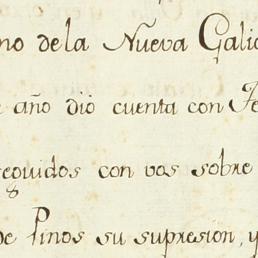 no dela Nueva Galic
año dió cuenta con Te
seguidos con vos sobre
de Pinos su supresion, y